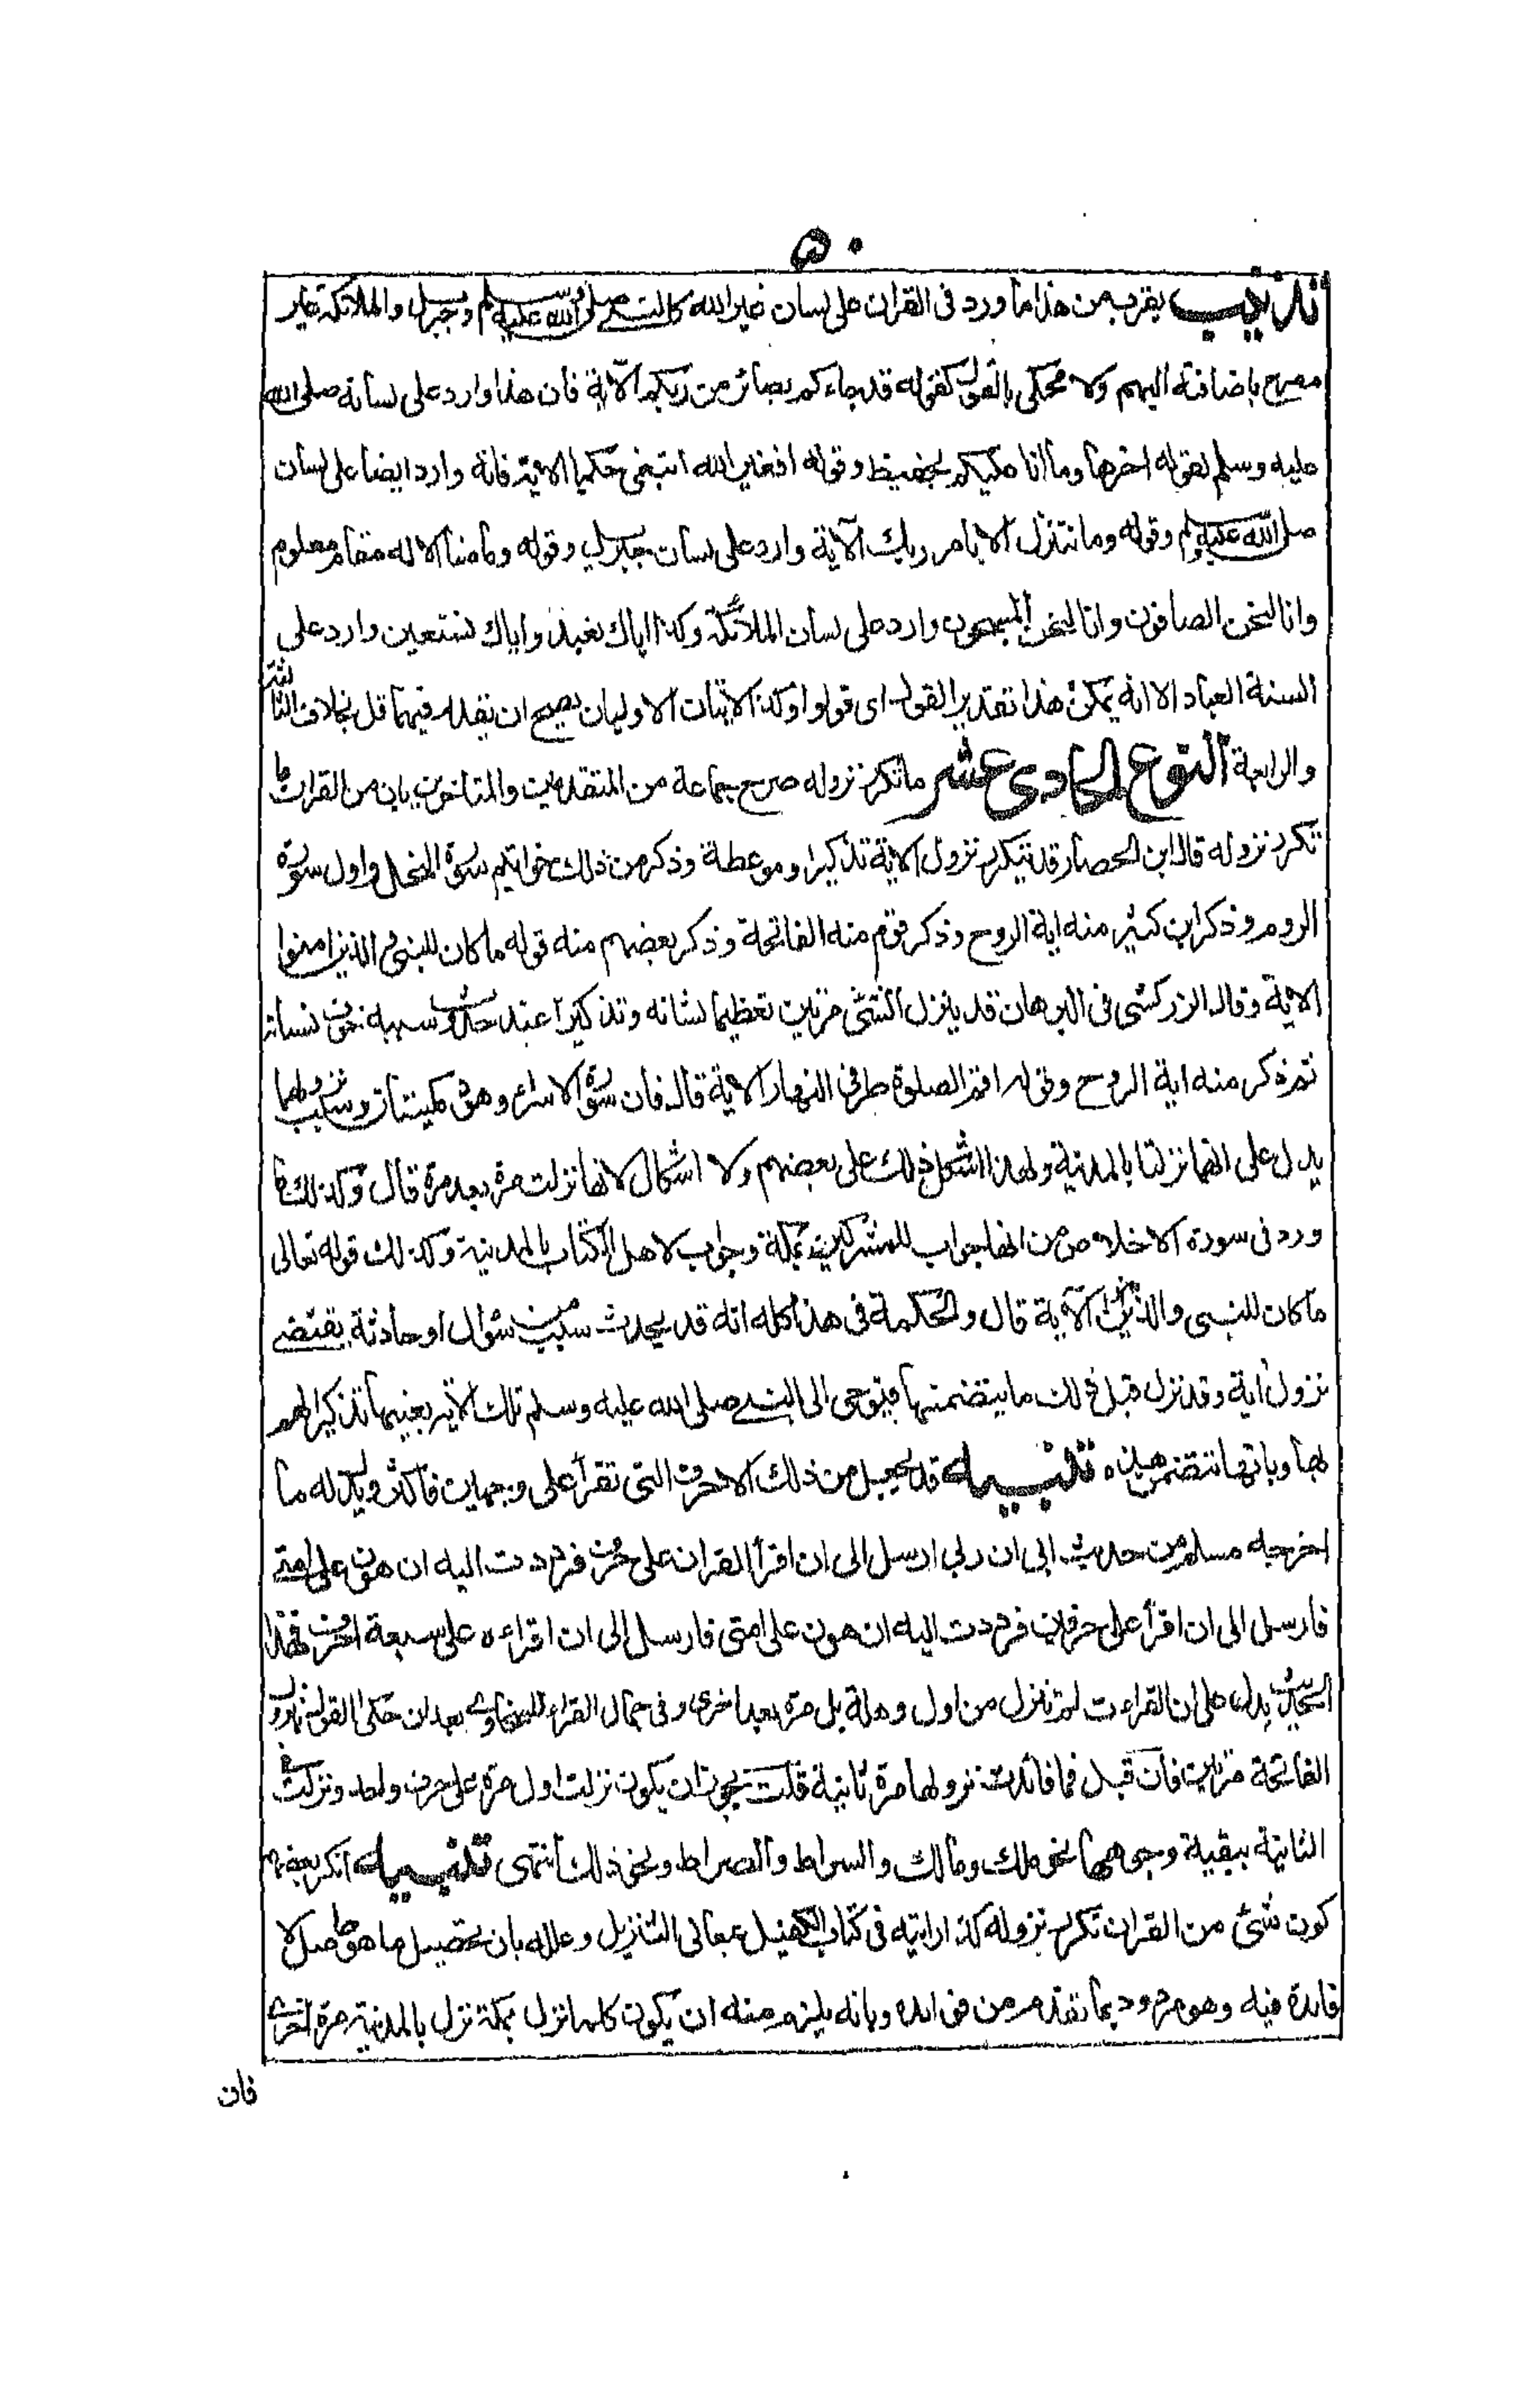 ٥٠
تذنيب يقرب من هذا ما ورد فى القران على لسان غير الله كالنبى صلى الله عليه وسلم وجبريل والملائكة غير
مصرح باضافته اليهم ولا محكى بالقول كقوله قد جاءكم بصائر من ربكم الآية فان هذا وارد على لسانه صلى الله
عليه وسلم لقوله اخرها وما انا عليكم بحفيظ وقوله افغير الله ابتغى حكما الاية فانه وارد ايضا على لسان
صلى الله عليه وسلم وقوله وما نتنزل الا بامر ربك الآية وارد على لسان جبريل وقوله وما منا الا له مقام معلوم
وانا لنحن الصافون وانا لنحن المسبحون وارد على لسان الملائكة وكذا اياك نعبد واياك نستعين وارد على
السنة العباد الا انه يمكن هذا تقدير القول اى قولوا وكذا الايتان الاوليان يصح ان يقدر فيهما قل بخلاف الثالثة
والرابعة النوع الحادى عشر ما تكرر نزوله صرح جماعة من المتقدمين والمتاخرين بان من القران ما
تكرر نزوله قال ابن الحصار قد يتكرر نزول الاية تذكيرا وموعظة وذكر من ذلك خواتيم سورة النحل واول سورة
الروم وذكر ابن كثير منه اية الروح وذكر قوم منه الفاتحة وذكر بعضهم منه قوله ما كان للنبى والذين امنوا
الاية وقال الزركشى فى البرهان قد ينزل الشئ مرتين تعظيما لشانه وتذكيرا عند حدوث سببه خوف نسيانه
ثم ذكر منه اية الروح وقوله اقم الصلوة طرفى النهار الاية قال فان سورة الاسراء وهود مكيتان وسبب نزولهما
يدل على انهما نزلتا بالمدينة ولهذا اشكل ذلك على بعضهم ولا اشكال لانها نزلت مرة بعد مرة قال وكذلك ما
ورد فى سورة الاخلاص من انها جواب للمشركين بمكة وجواب لاهل الكتاب بالمدينة وكذلك قوله تعالى
ما كان للنبى والذين امنوا الآية قال والحكمة فى هذا كله انه قد يحدث سبب من سوال او حادثة يقتضى
نزول اية وقد نزل قبل ذلك ما يتضمنها فيوحى الى النبى صلى الله عليه وسلم تلك الاية بعينها تذكيرا لهم
بها وبانها تتضمن هذه تنبيه قد يجعل من ذلك الاحرف التى تقرأ على وجهين فاكثر ويدل له ما
اخرجه مسلم من حديث ابى ان ربى ارسل الى ان اقرأ القران على حرف فرددت اليه ان هون على امتى
فارسل الى ان اقرأ على حرفين فرددت اليه ان هون على امتى فارسل الى ان اقراءه على سبعة احرف فهذا
الحديث يدل على ان القراءت لم تنزل من اول وهلة بل مرة بعد اخرى وفى جمال القراء للسخاوى بعد ان حكى القول بنزول
الفاتحة مرتين فان قيل فما فائدت نزولها مرة ثانية قلت يجوز ان يكون نزلت اول مرة على حرف واحد ونزلت فى
الثانية ببقية وجوهها نحو ملك ومالك والسراط والصراط ونحو ذلك انتهى تنبيه انكر بعضهم
كون شئ من القران تكرر نزوله كذا رايته فى كتاب الكفيل بمعانى التنزيل وعلله بان تحصيل ما هو حاصل لا
فايدة فيه وهو مردود بما تقدم من فوائده وبانه يلزم منه ان يكون كلما نزل بمكة نزل بالمدينة مرة اخرى
فان